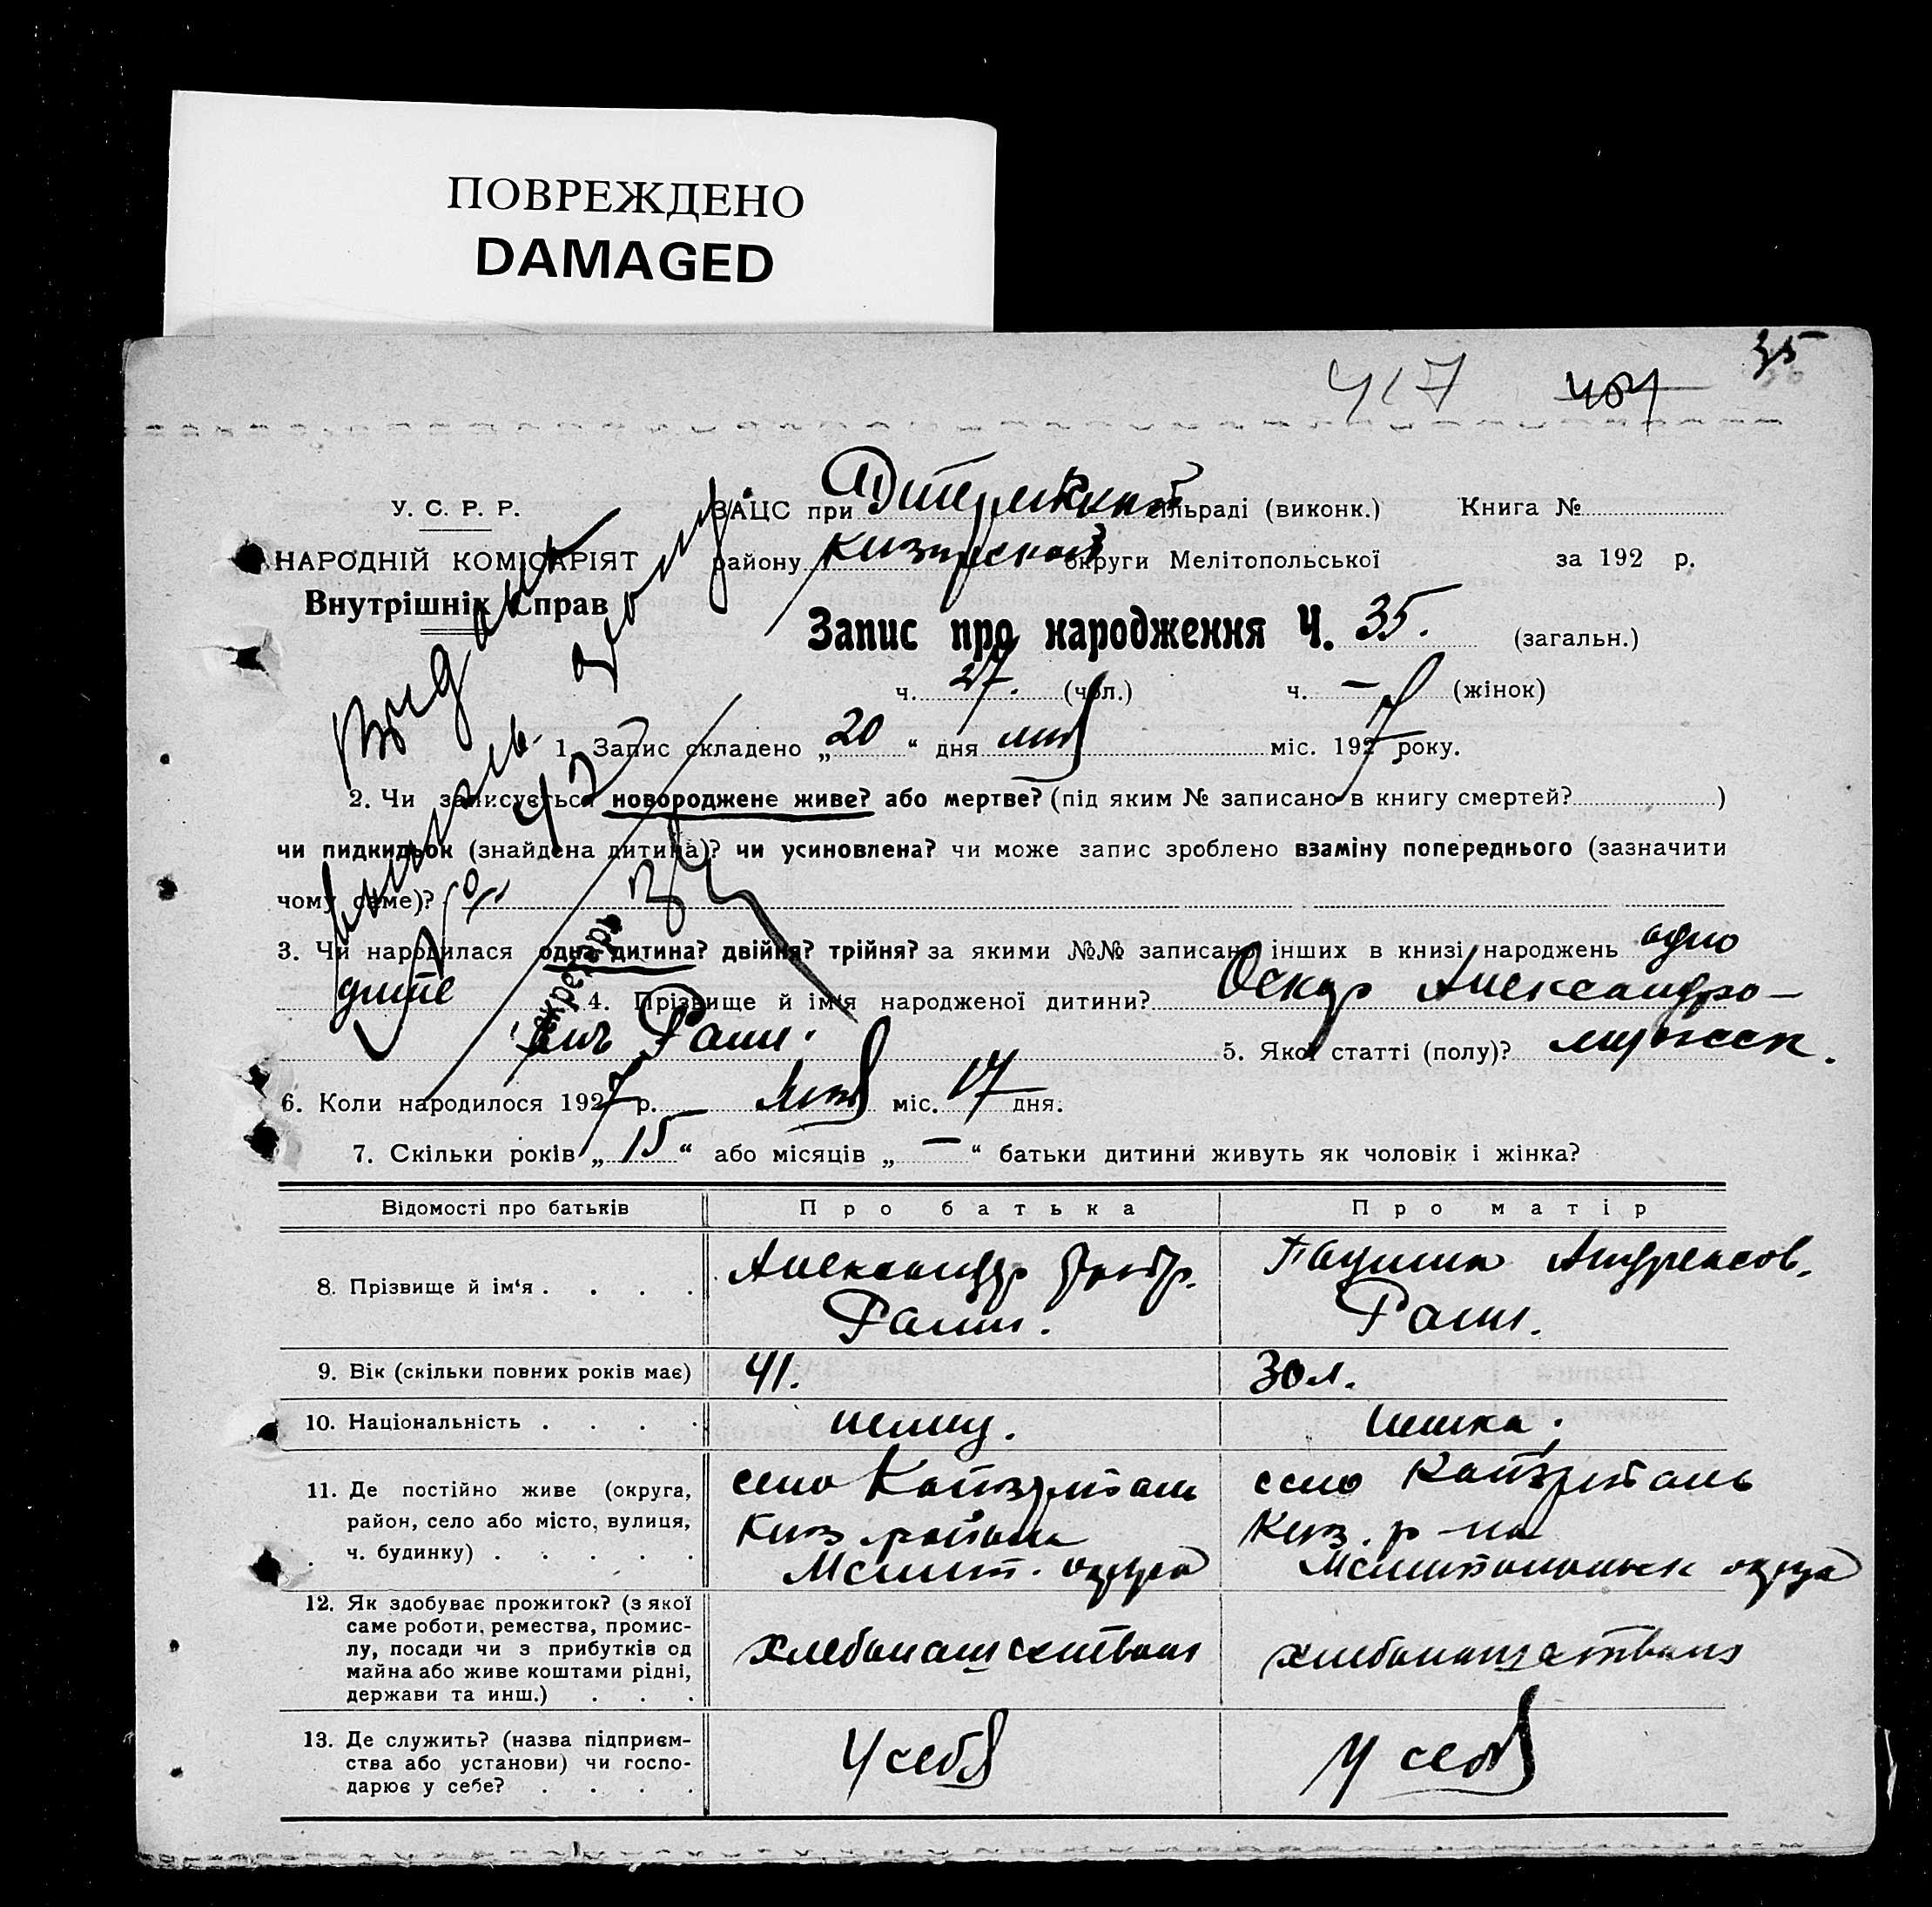 ПОВРЕЖДЕНО
DAMAGED
35
417 404
У. С. Р. Р.
ЗАЦС при сільраді (виконк.) Книга №
НАРОДНІЙ КОМІСАРІЯТ
району округи Мелітопольської за 192 р.
Внутрішніх Справ
Запис про народження Ч. 35. (загальн.)
ч. 27. (чол.) ч. — (жінок)
1. Запис складено „20“ дня мая міс. 1927 року.
2. Чи записується новороджене живе? або мертве? (під яким № записано в книгу смертей? )
чи пидкидьок (знайдена дитина)? чи усиновлена? чи може запис зроблено взаміну попереднього (зазначити
чому саме)?
секретарь
3. Чи народилася одна дитина? двійня? трійня? за якими №№ записано інших в книзі народжень одно
дите 4. Прізвище й ім'я народженої дитини? Оскар Александро-
вич Рамн.
5. Якої статті (полу)? мужеск.
6. Коли народилося 1927 р. мая міс. 17 дня.
7. Скільки років „15“ або місяців „—“ батьки дитини живуть як чоловік і жінка?
Відомості про батьків Про батька Про матір
8. Прізвище й ім'я . . . . Александр Рамн. Паулина Андреасов. Рамн.
9. Вік (скільки повних років має) 41. 30 л.
10. Національність . . . . немец. Немка.
11. Де постійно живе (округа, район, село або місто, вулиця, ч. будинку) . . . . . село Кайзерталь Киз. района Мелит. округа село Кайзерталь Киз. р-на Мелитопольск округа
12. Як здобуває прожиток? (з якої саме роботи, ремества, промислу, посади чи з прибутків од майна або живе коштами рідні, держави та инш.) . . . хлебопашеством хлебопашеством
13. Де служить? (назва підприємства або установи) чи господарює у себе? . . . . У себя У себя